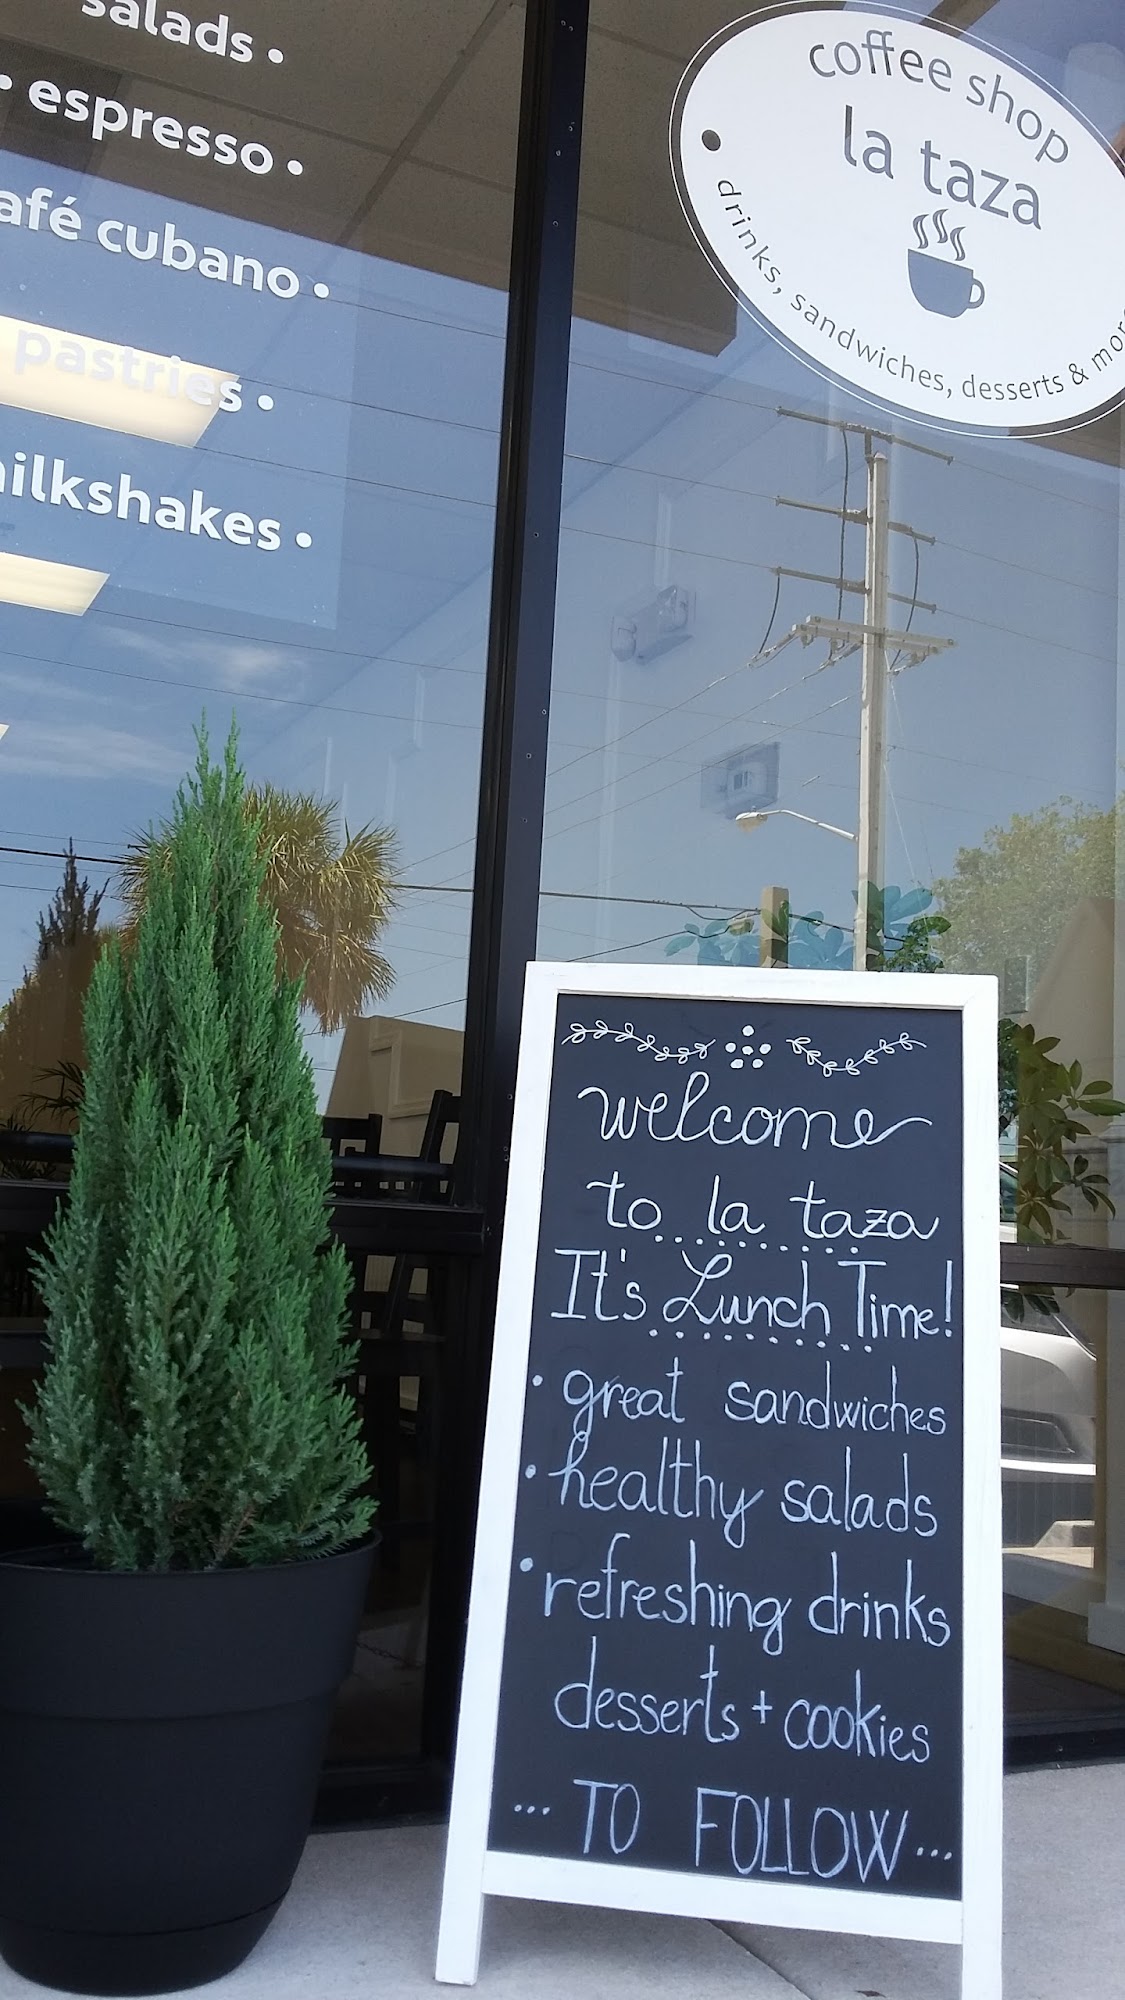 salads •
• espresso •
café cubano •
pastries •
milkshakes •
coffee shop
la taza
• drinks, sandwiches, desserts & more
welcome
to la taza
It's Lunch Time!
• great sandwiches
• healthy salads
• refreshing drinks
desserts + cookies
... TO FOLLOW ...